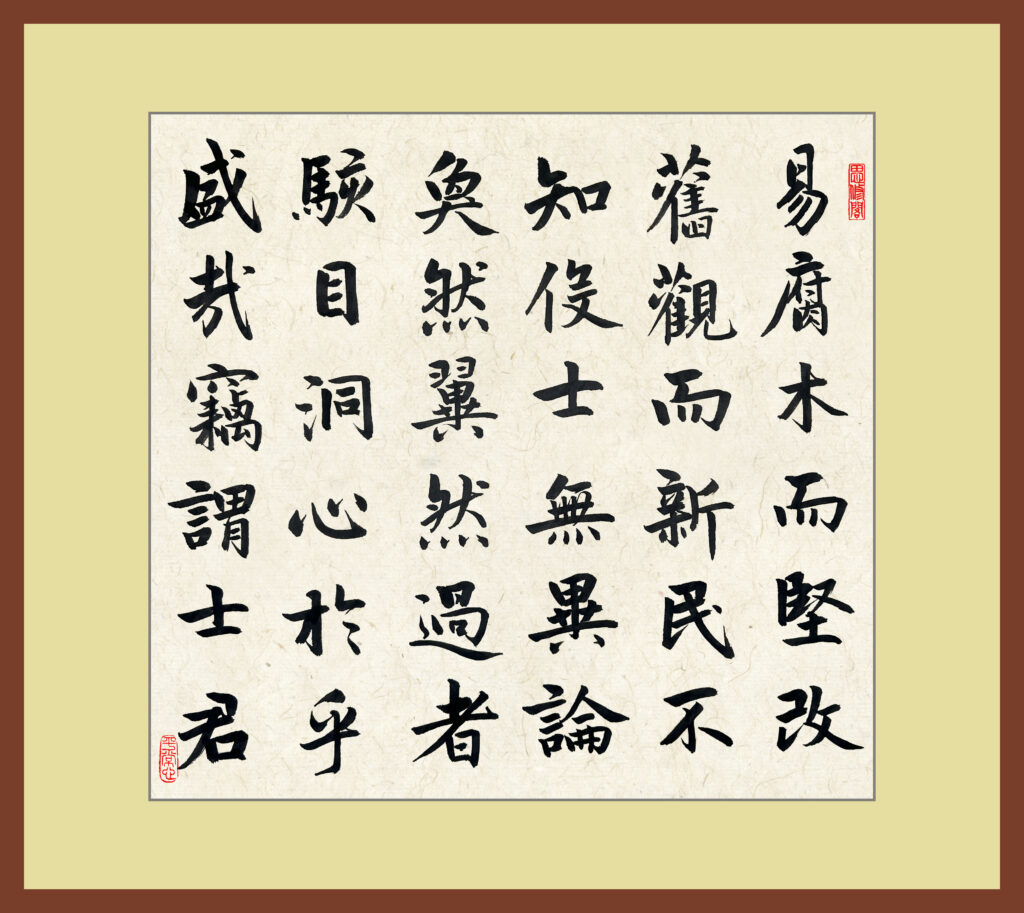 思修閣
易腐木而堅改
舊觀而新民不
知伇士無異論
奐然翼然過者
駭目洞心於乎
盛哉竊謂士君
平常心